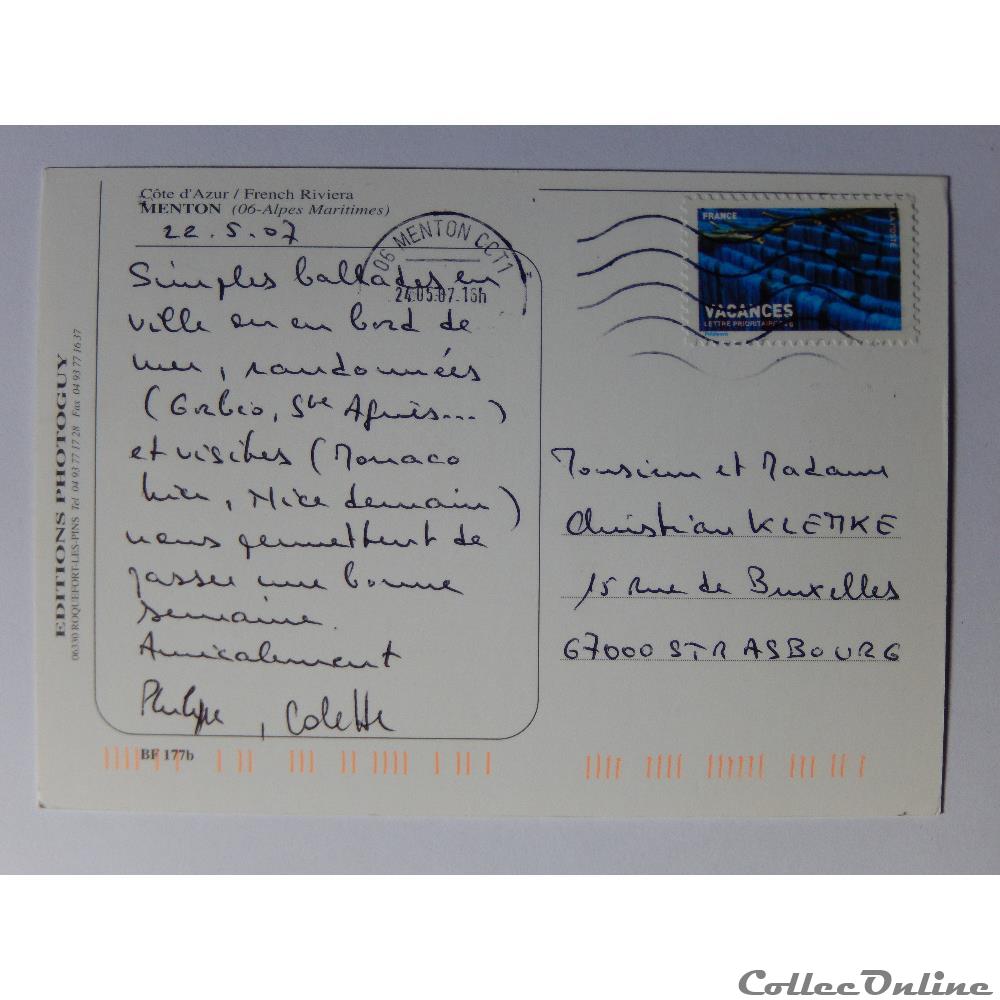 Côte d'Azur / French Riviera
MENTON (06-Alpes Maritimes)
22.5.07
Simples ballades en
ville ou en bord de
mer, randonnées
(Gorbio, Ste Agnès...)
et visites (Monaco
hier, Nice demain)
nous permettent de
passer une bonne
semaine.
Amicalement
Philippe, Colette
BF 177b
EDITIONS PHOTOGUY
06330 ROQUEFORT-LES-PINS Tel 04 93 77 17 28 Fax 04 93 77 16 37
06 MENTON CCT1
24.05.07.16h
FRANCE
LA POSTE
VACANCES
LETTRE PRIORITAIRE 20 G
Monsieur et Madame
Christian KLEMKE
15 rue de Bruxelles
67000 STRASBOURG
CollecOnline